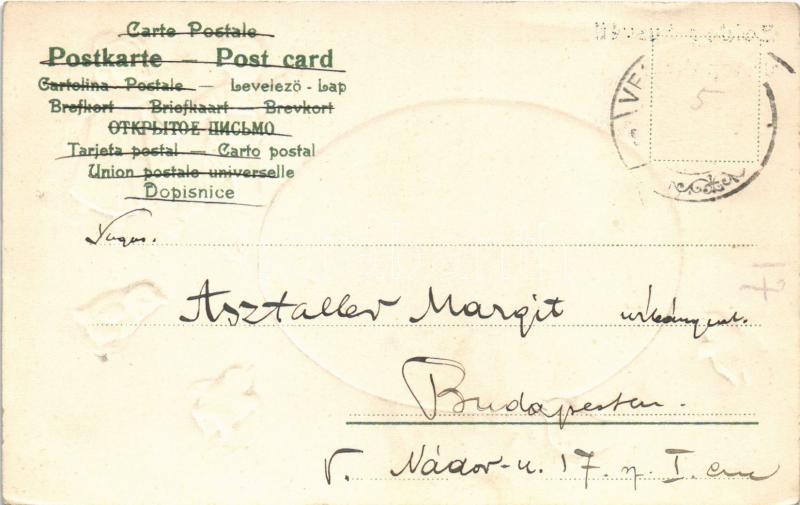 Carte Postale
Postkarte — Post card
Cartolina Postale — Levelezö - Lap
Brefkort — Briefkaart — Brevkort
ОТКРЫТОЕ ПИСЬМО
Tarjeta postal — Carto postal
Union postale universelle
Dopisnice
VE
5
Asztaller Margit
Budapesten.
V. Nádor-u. 17. I. em